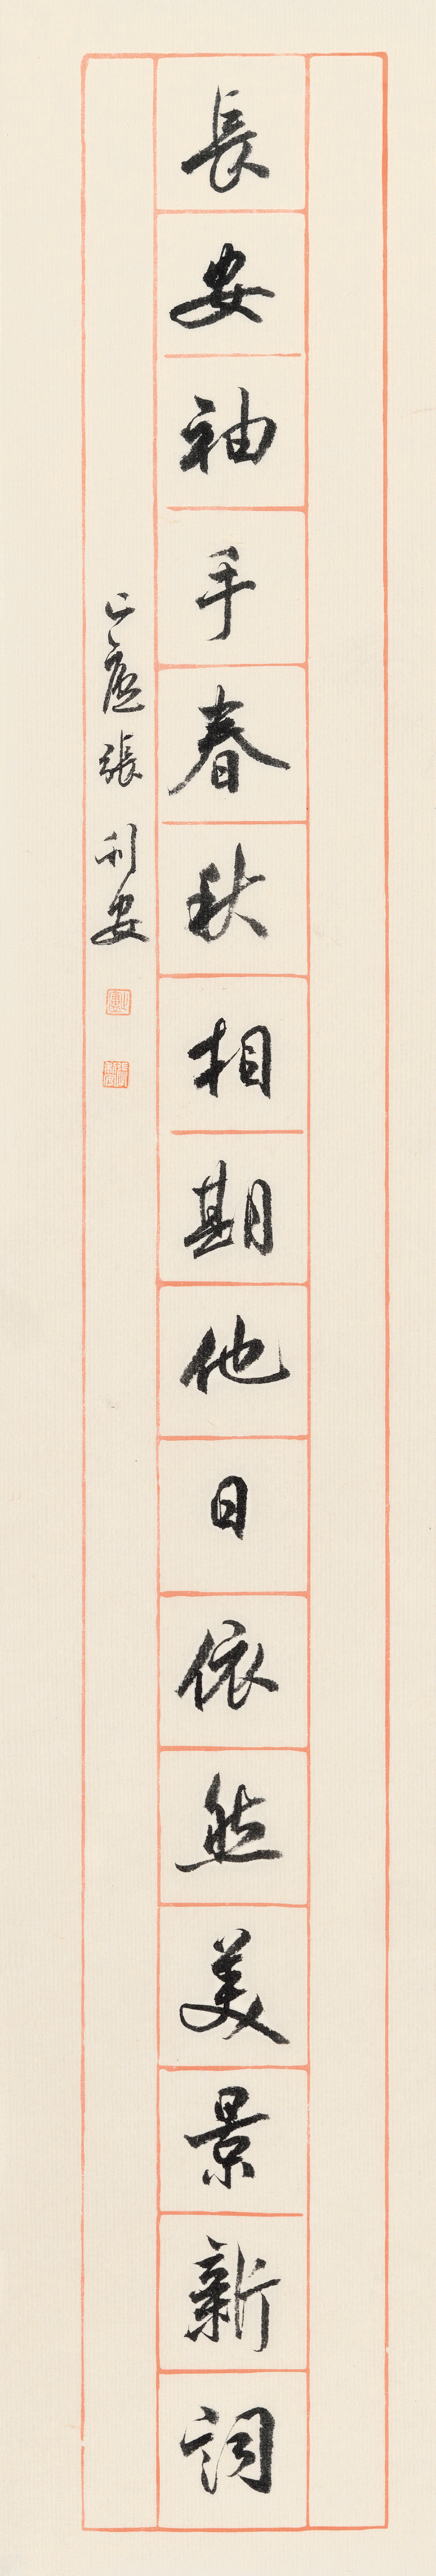 長安袖手春秋相期他日依然美景新詞
止廬張利安